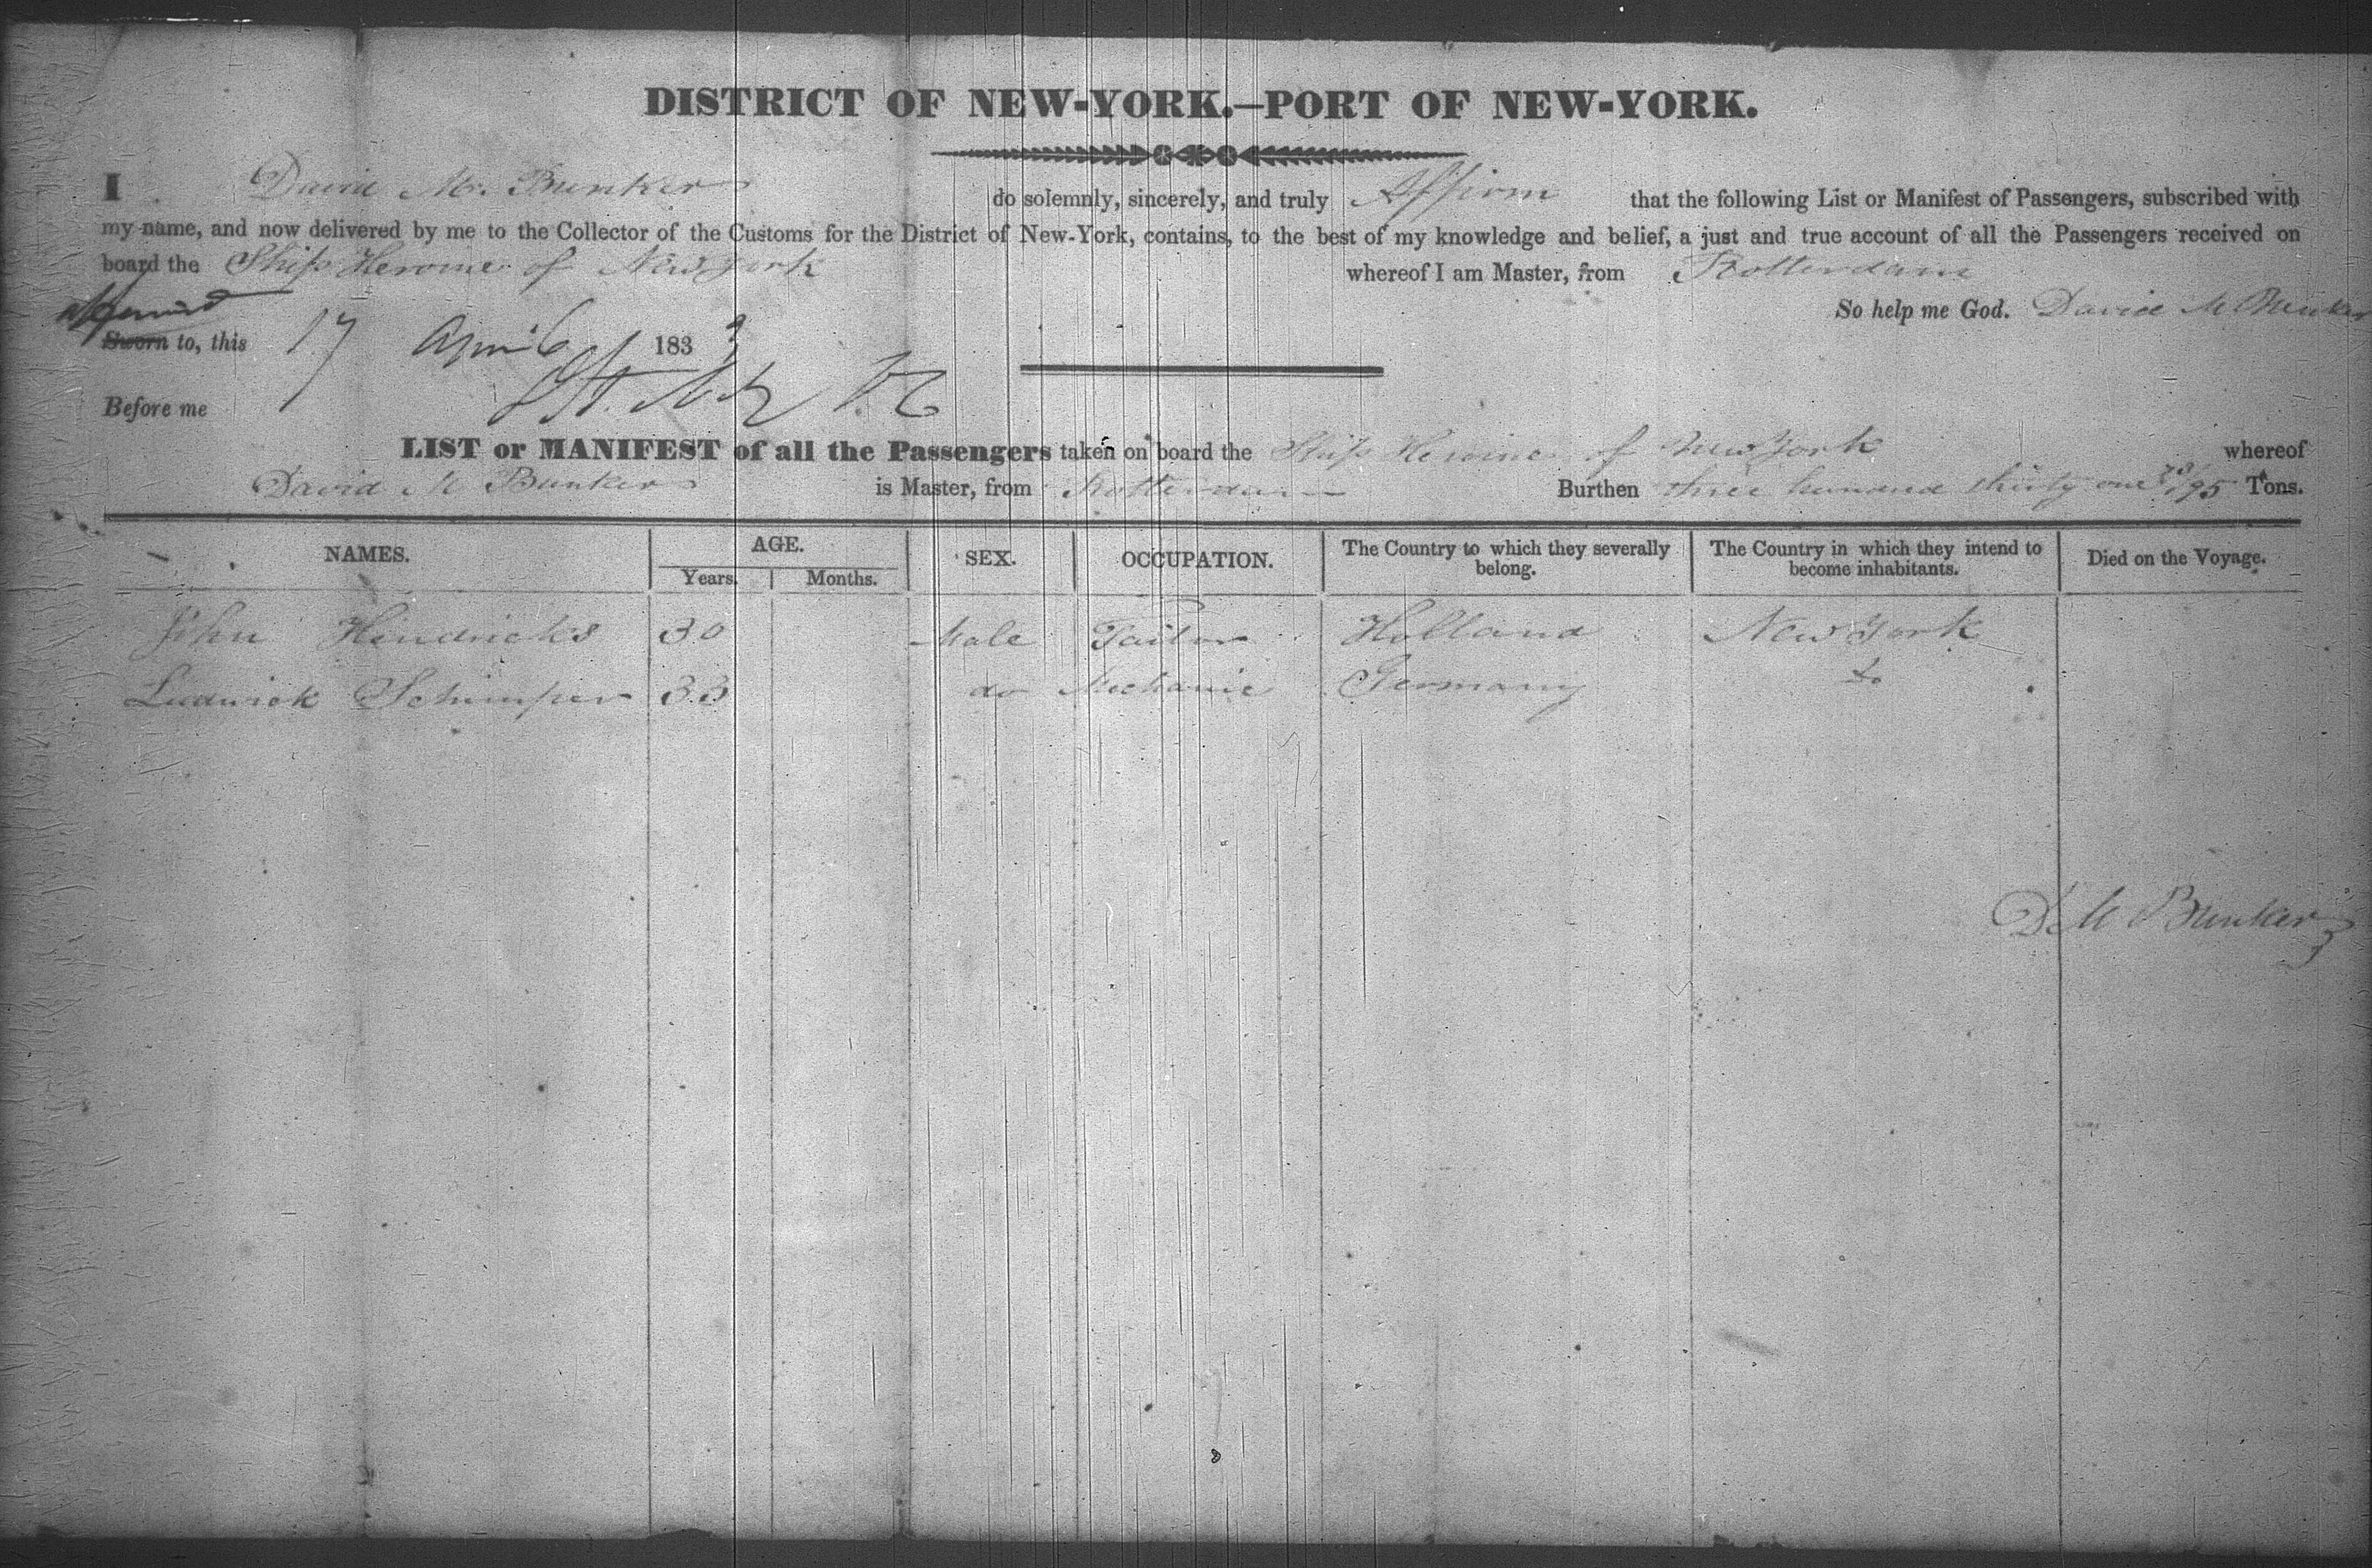 DISTRICT OF NEW-YORK.—PORT OF NEW-YORK.
I David M. Bunker do solemnly, sincerely, and truly Affirm that the following List or Manifest of Passengers, subscribed with
my name, and now delivered by me to the Collector of the Customs for the District of New-York, contains, to the best of my knowledge and belief, a just and true account of all the Passengers received on
board the Ship Heroine of New York whereof I am Master, from Rotterdam
So help me God. David M Bunker
affirmed
Sworn to, this 17 April 1833
Before me
LIST or MANIFEST of all the Passengers taken on board the Ship Heroine of New York whereof
David M Bunker is Master, from Rotterdam Burthen three hundred thirty one /95 Tons.
NAMES. AGE. SEX. OCCUPATION. The Country to which they severally belong. The Country in which they intend to become inhabitants. Died on the Voyage.
Years. Months.
John Hendricks 30 Male Tailor Holland New York
Ludwick Schimper 33 do Mechanic Germany do
D. M Bunker